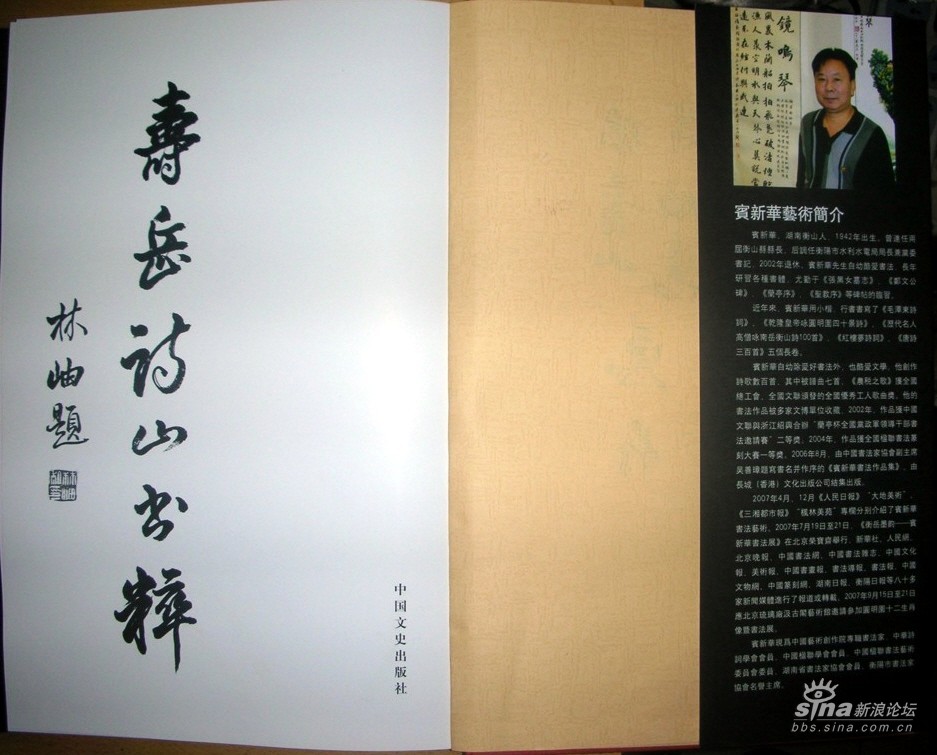 壽岳詩山书粹
林岫題
中国文史出版社
鏡鳴琴
賓新華藝術簡介
賓新華，湖南衡山人，1942年出生。曾連任兩
屆衡山縣縣長，后調任衡陽市水利水電局局長兼黨委
書記，2002年退休。賓新華先生自幼酷愛書法，長年
研習各種書體，尤勤于《張黑女墓志》、《鄭文公
碑》、《蘭亭序》、《聖教序》等碑帖的臨習。
近年來，賓新華用小楷、行書書寫了《毛澤東詩
詞》、《乾隆皇帝咏圓明園四十景詩》、《歷代名人
高僧咏南岳衡山詩100首》、《紅樓夢詩詞》、《唐詩
三百首》五個長卷。
賓新華自幼除愛好書法外，也酷愛文學，他創作
詩歌數百首，其中被譜曲七首，《農税之歌》獲全國
總工會、全國文聯頒發的全國優秀工人歌曲獎。他的
書法作品被多家文博單位收藏。2002年，作品獲中國
文聯與浙江紹興合辦“蘭亭杯全國黨政軍領導干部書
法邀請賽”二等獎。2004年，作品獲全國楹聯書法篆
刻大賽一等獎。2006年8月，由中國書法家協會副主席
吴善璋題寫書名并作序的《賓新華書法作品集》，由
長城（香港）文化出版公司結集出版。
2007年4月、12月《人民日報》“大地美術”、
《三湘都市報》“楓林美苑”專欄分别介紹了賓新華
書法藝術。2007年7月19日至21日，《衡岳墨韵——賓
新華書法展》在北京榮寶齋舉行，新華社、人民網、
北京晚報、中國書法網、中國書法雜志、中國文化
報、美術報、中國書畫報、書法導報、書法報、中國
文物網、中國篆刻網、湖南日報、衡陽日報等八十多
家新聞媒體進行了報道或轉載。2007年9月15日至21日
應北京琉璃廠汲古閣藝術館邀請參加圓明園十二生肖
像暨書法展。
賓新華現爲中國藝術創作院專職書法家、中華詩
詞學會會員、中國楹聯學會會員、中國楹聯學會書法藝術
委員會委員、湖南省書法家協會會員、衡陽市書法家
協會名譽主席。
sina新浪论坛
bbs.sina.com.cn